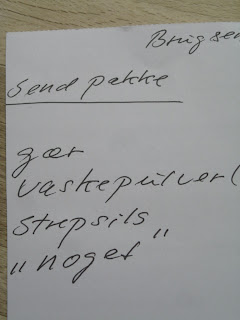 Brugsen
Send pakke
gær
vaskepulver(
Strepsils
„noget”